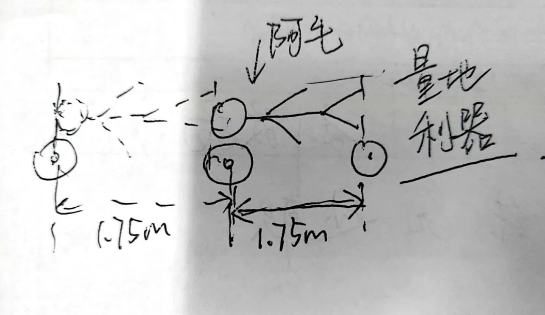 阿毛
量地
利器
1.75m
1.75m